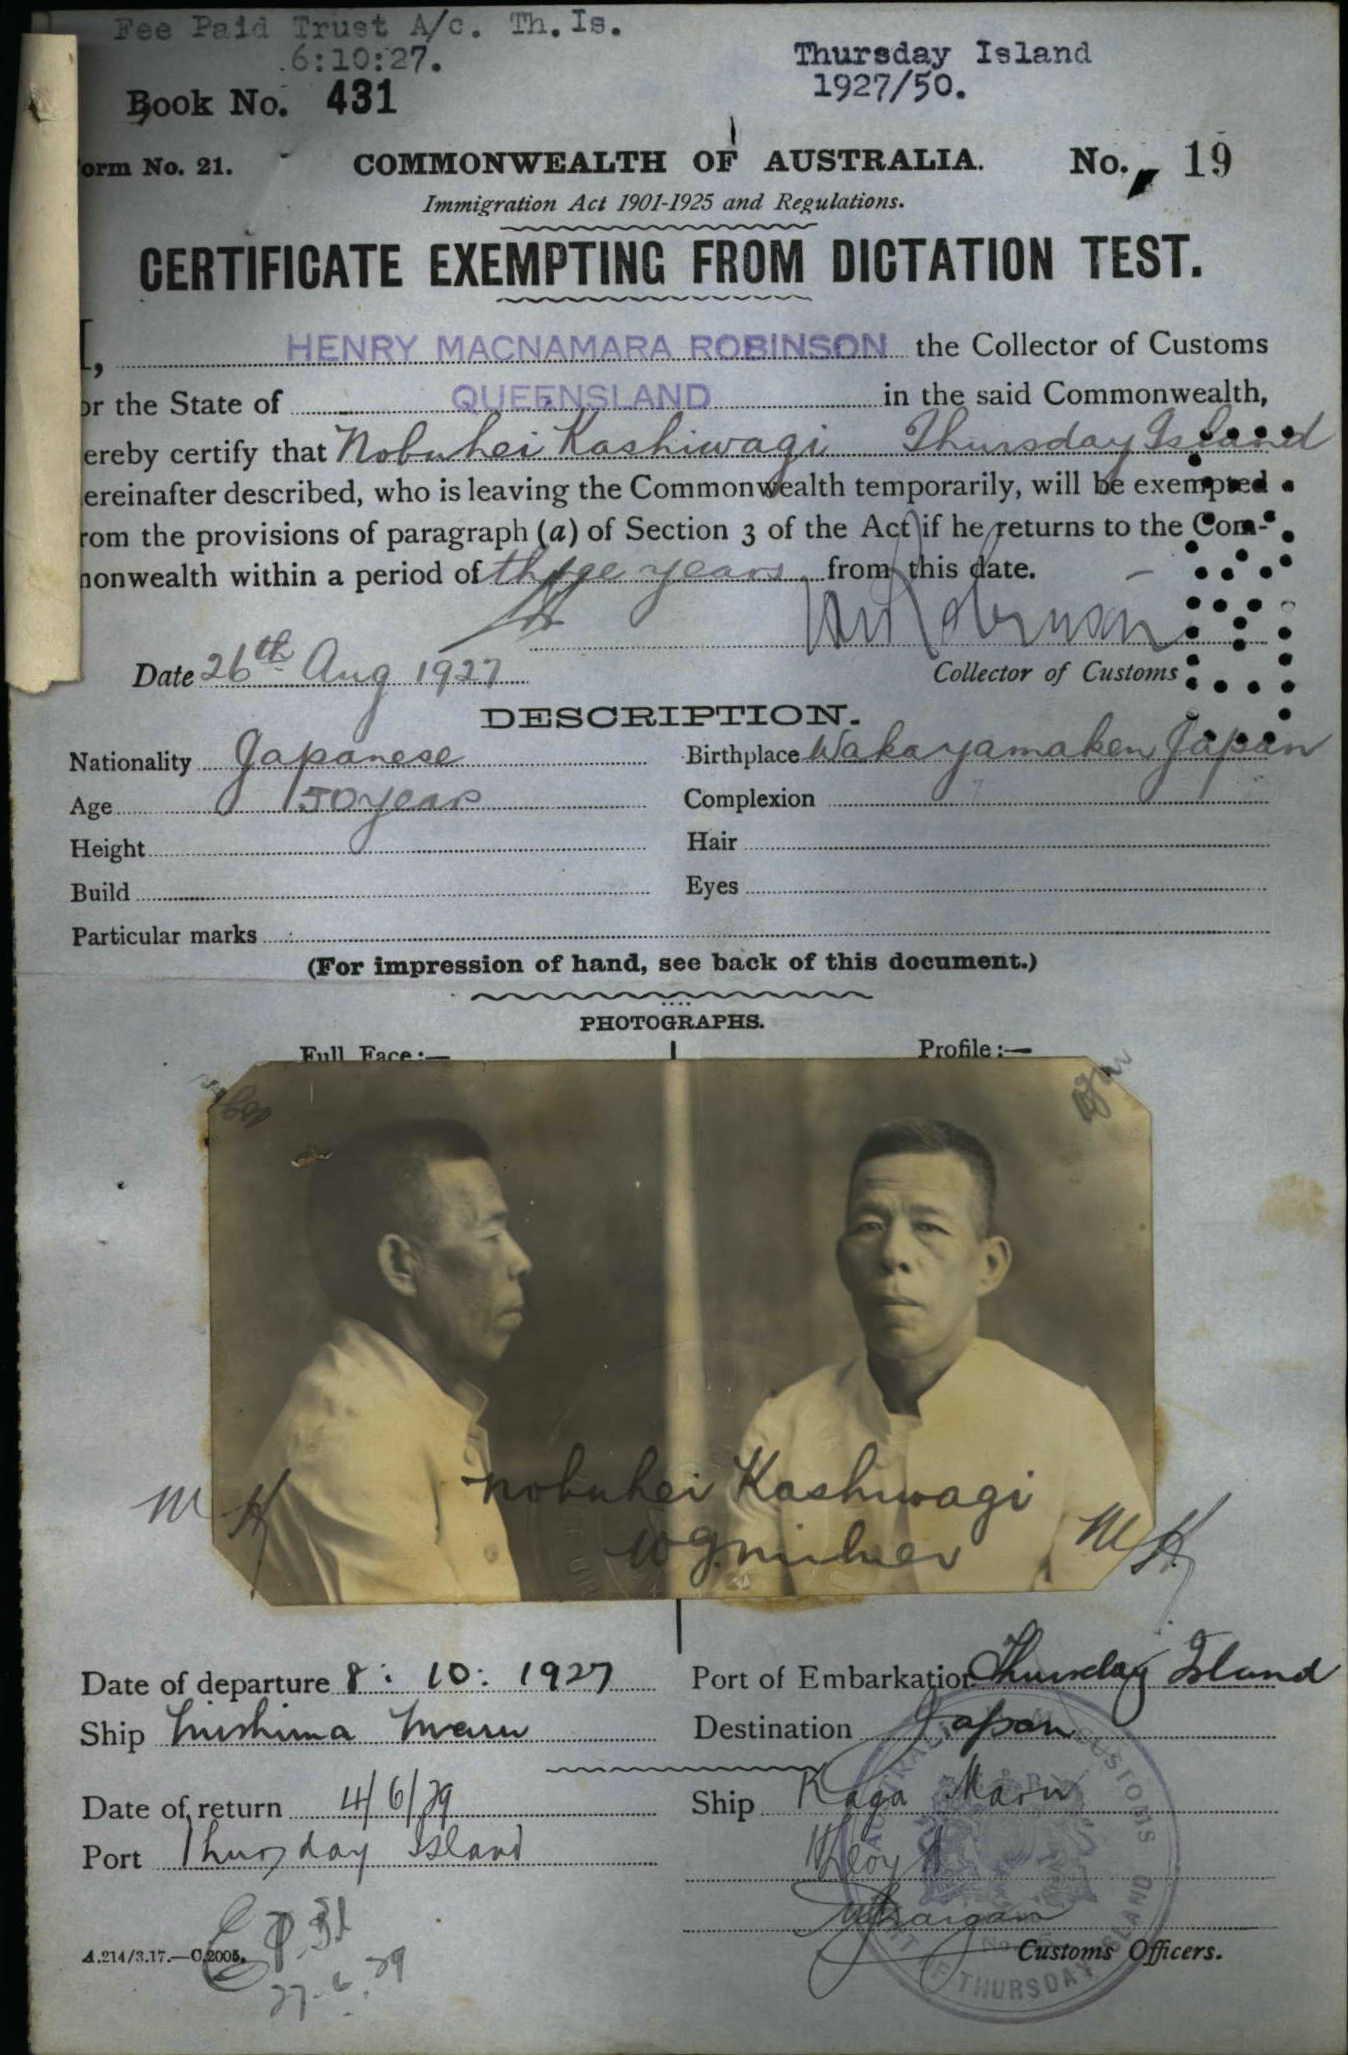 Fee Paid Trust A/c. Th.Is.
6:10:27.
Thursday Island
1927/50.
Book No. 431
orm No. 21.
COMMONWEALTH OF AUSTRALIA.
No. 19
Immigration Act 1901-1925 and Regulations.
CERTIFICATE EXEMPTING FROM DICTATION TEST.
I, HENRY MACNAMARA ROBINSON the Collector of Customs
or the State of QUEENSLAND in the said Commonwealth,
ereby certify that Nobuhei Kashiwagi Thursday Island
ereinafter described, who is leaving the Commonwealth temporarily, will be exempted
rom the provisions of paragraph (a) of Section 3 of the Act if he returns to the Com-
monwealth within a period of three years from this date.
HM Robinson
Date 26th Aug 1927
Collector of Customs
DESCRIPTION.
Nationality Japanese
Birthplace Wakayamaken Japan
Age 50 years
Complexion
Height
Hair
Build
Eyes
Particular marks
(For impression of hand, see back of this document.)
PHOTOGRAPHS.
Full Face:—
Profile:—
Nobuhei Kashiwagi
M H
WG Milner
M H
Date of departure 8: 10: 1927
Port of Embarkation Thursday Island
Ship Mishima Maru
Destination Japan
Date of return 4/6/29
Ship Kaga Maru
Port Thursday Island
Customs Officers.
A.214/3.17.—C.2005.
27.6.29
AUSTRALIA CUSTOMS
PORT OF THURSDAY ISLAND